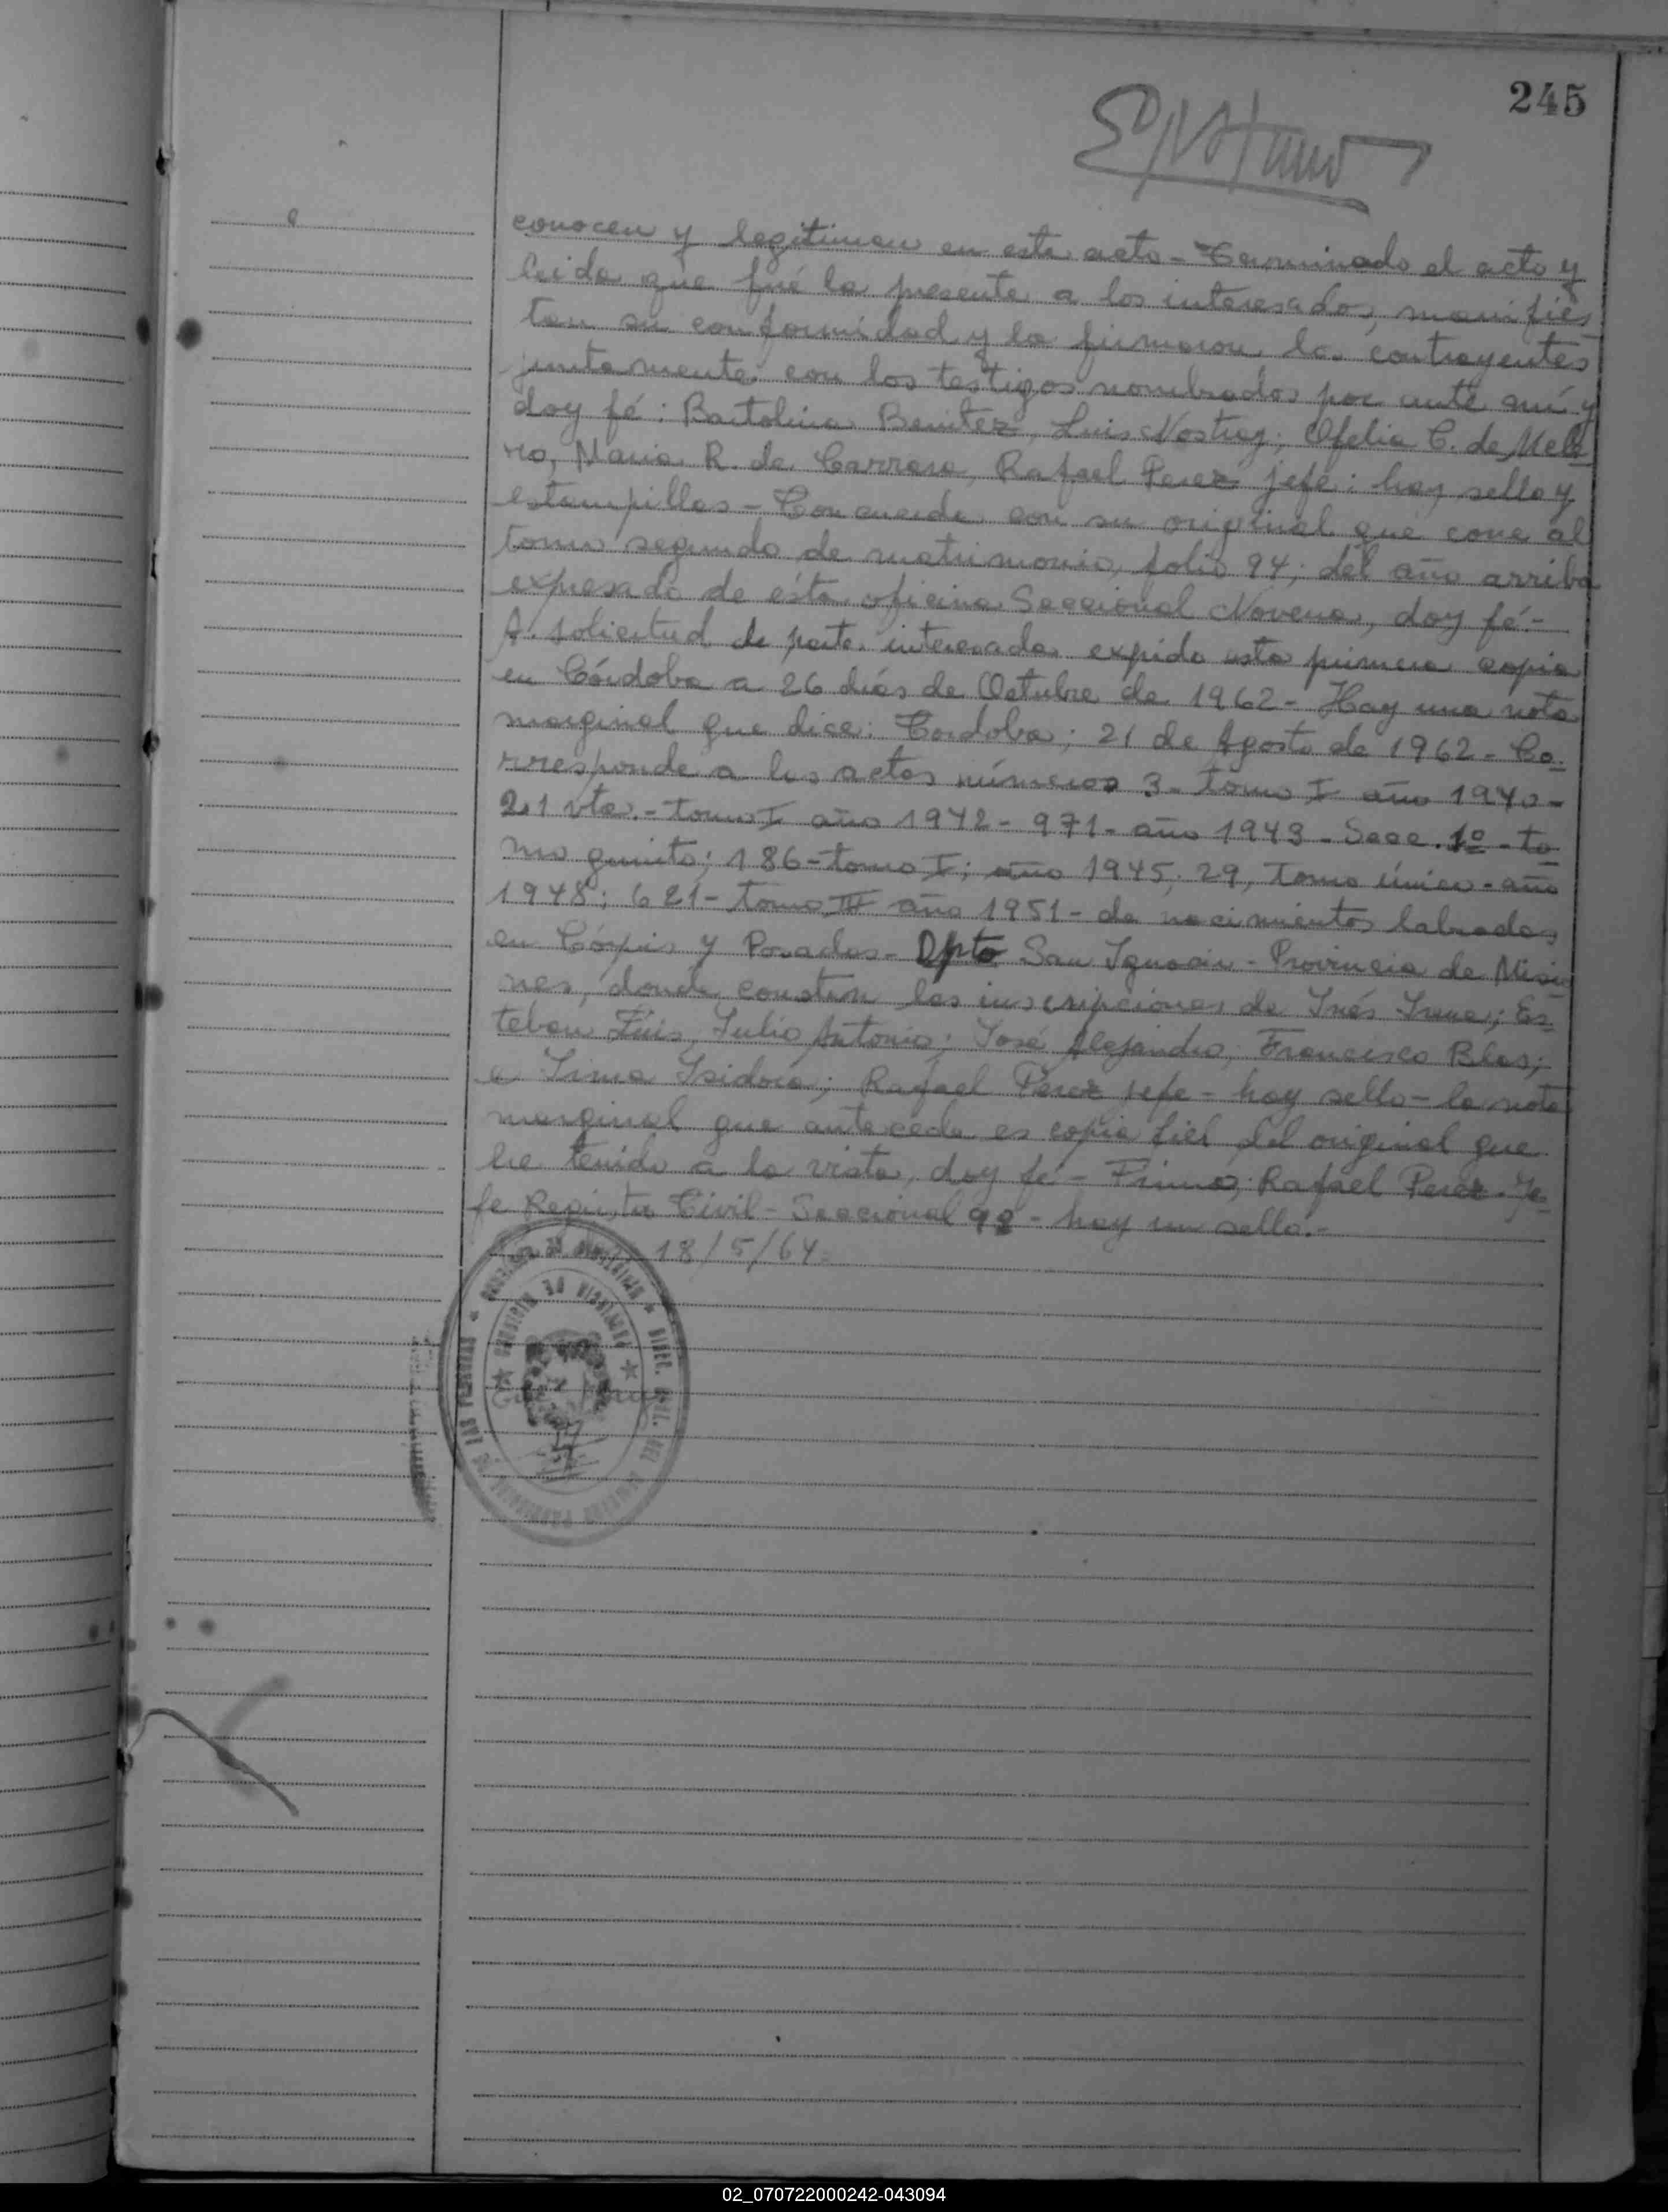 245
conocen y legitiman en este acto - Terminado el acto y
leida que fué la presente a los interesados, manifies
tan su conformidad y la firmaron los contrayentes
juntamente con los testigos nombrados por ante mí y
doy fé: Bartolina Benitez, Luis Nostray; Ofelia C. de Mele
ro, Maria R. de Carraro, Rafael Perez jefe: hay sello y
estampillas - Concuerda con su original que corre al
tomo segundo de matrimonio, folio 94; del año arriba
expresado de ésta oficina Seccional Novena, doy fé.-
A solicitud de parte interesada expido esta primera copia
en Córdoba a 26 días de Octubre de 1962 - Hay una nota
marginal que dice: Cordoba; 21 de Agosto de 1962 - Co-
rresponde a las actas números 3 - tomo I año 1940 -
21 vta. - tomo I año 1942 - 971 - año 1943 - Secc. 1º - to-
mo quinto; 186 - tomo I; año 1945; 29, tomo único - año
1948; 621 - tomo III año 1951 - de nacimientos labradas
en Córpus y Posadas - Dpto San Ignacio - Provincia de Misio
nes, donde consten las inscripciones de Inés Irene; Es-
teban Luis, Julio Antonio; José Alejandro; Francisco Blas;
e Irma Isidora; Rafael Perez jefe - hay sello - la nota
marginal que antecede es copia fiel del original que
he tenido a la vista, doy fé - Firma; Rafael Perez - Je-
fe Registro Civil - Seccional 9ª - hay un sello.-
18/5/64.
PROVINCIA DE MISIONES
02_070722000242-043094